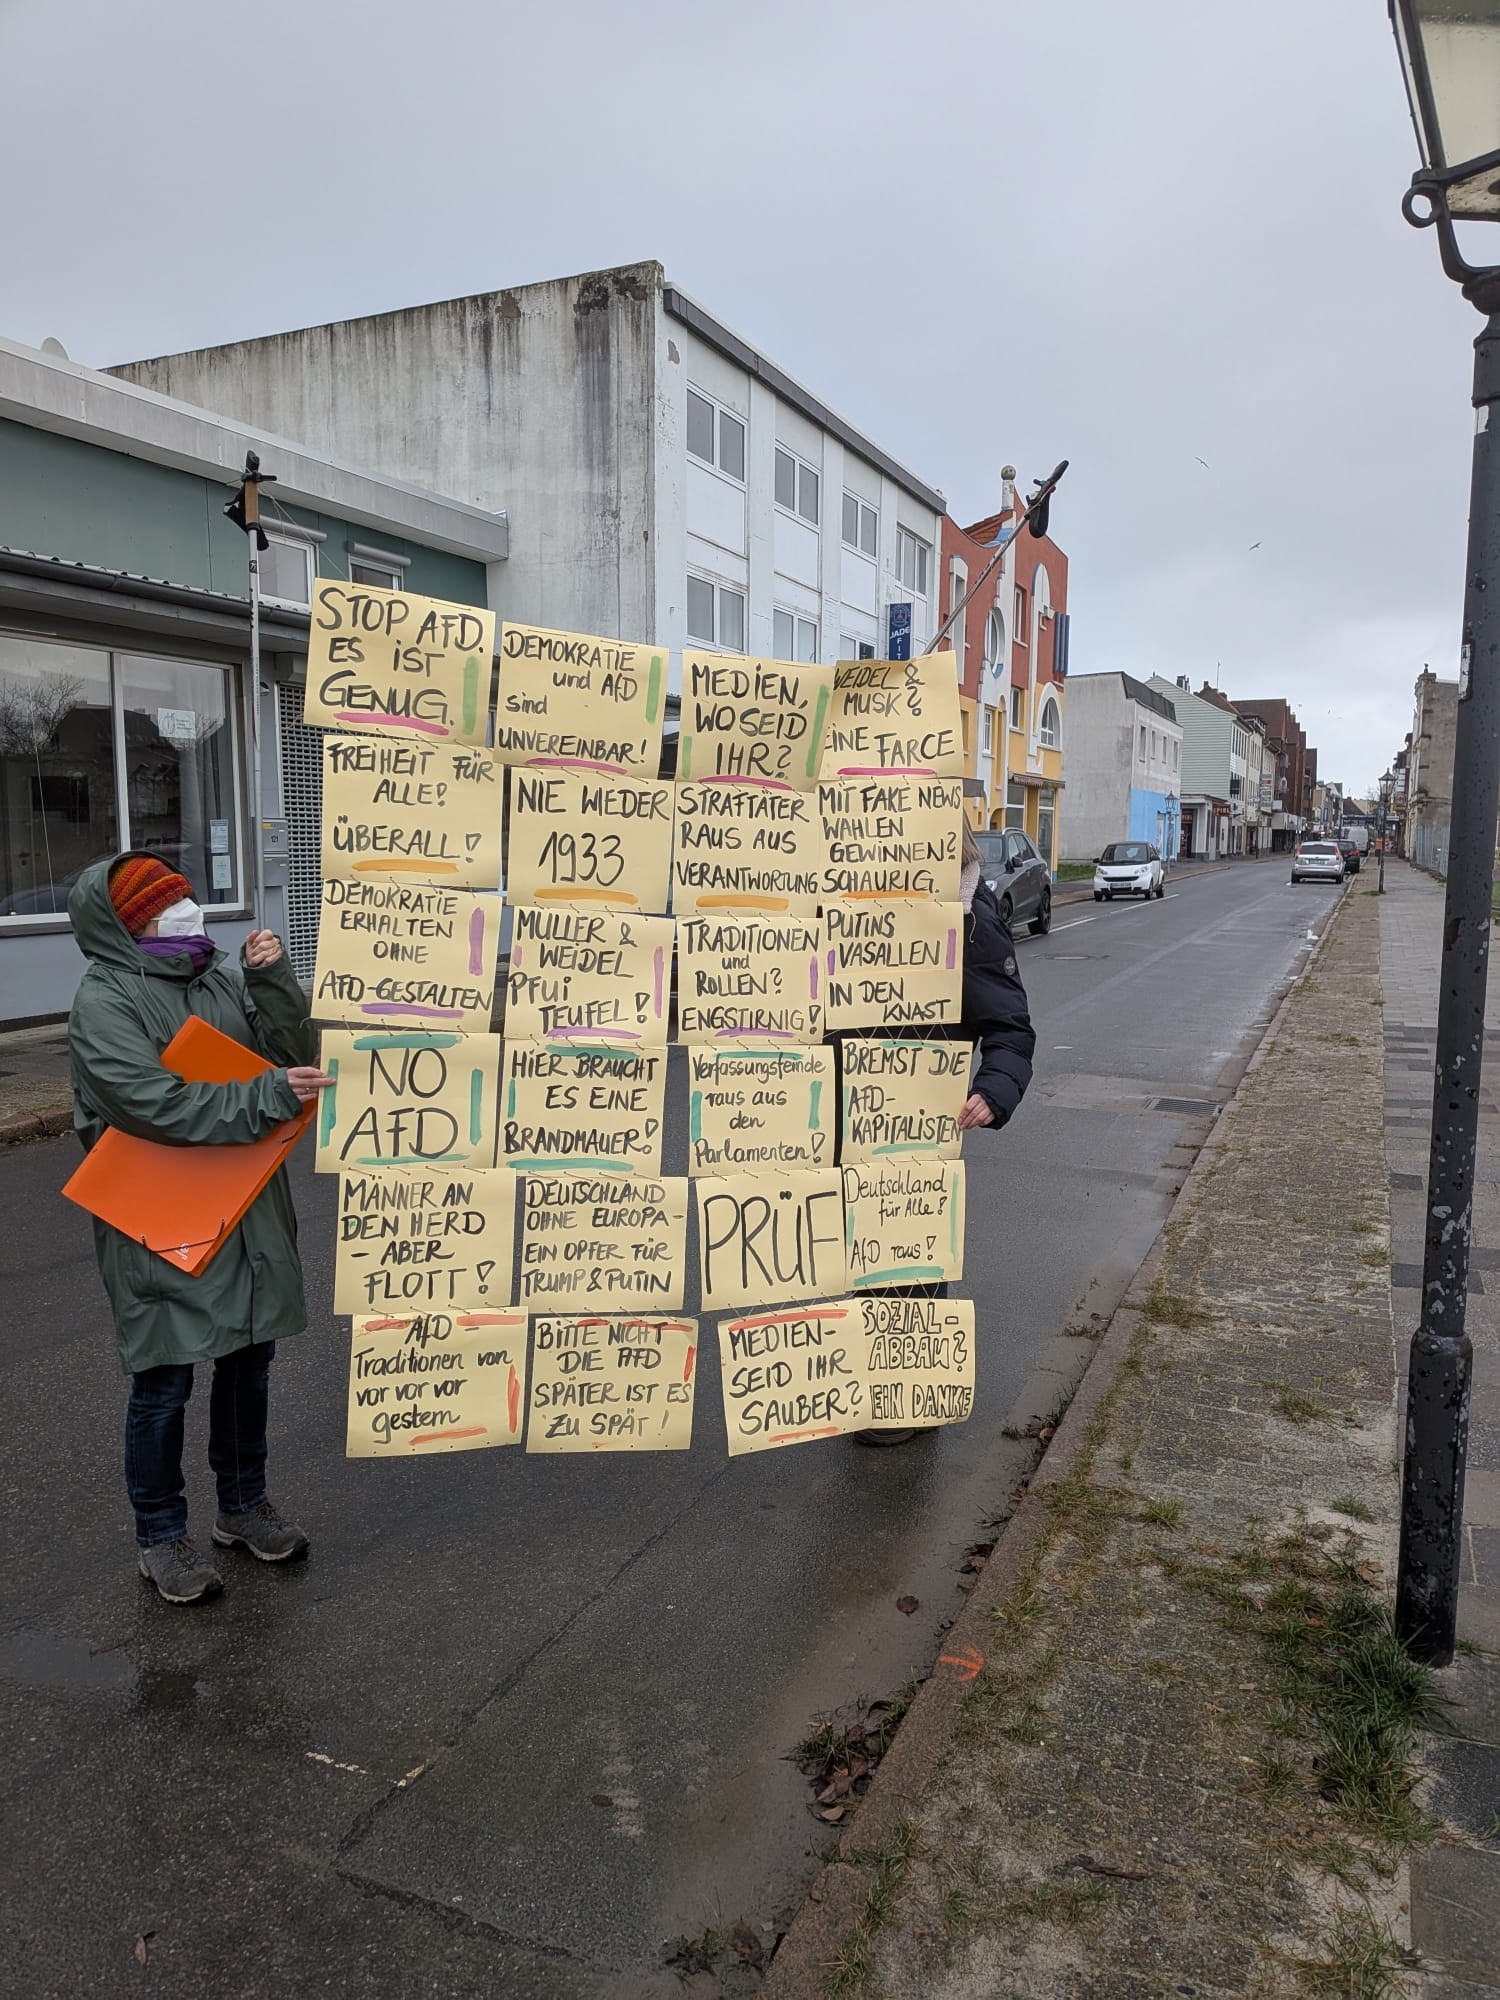 STOP AFD.
ES IST
GENUG.
DEMOKRATIE
und AfD
sind
UNVEREINBAR!
MEDIEN,
WO SEID
IHR?
WEIDEL &
MUSK?
EINE FARCE
FREIHEIT FÜR
ALLE!
ÜBERALL!
NIE WIEDER
1933
STRAFTÄTER
RAUS AUS
VERANTWORTUNG
MIT FAKE NEWS
WAHLEN
GEWINNEN?
SCHAURIG.
DEMOKRATIE
ERHALTEN
OHNE
AFD-GESTALTEN
MÜLLER &
WEIDEL
Pfui
TEUFEL!
TRADITIONEN
und
ROLLEN?
ENGSTIRNIG!
PUTINS
VASALLEN
IN DEN
KNAST
NO
AFD
HIER BRAUCHT
ES EINE
BRANDMAUER!
Verfassungsfeinde
raus aus
den
Parlamenten!
BREMST DIE
AfD-
KAPITALISTEN
MÄNNER AN
DEN HERD
- ABER
FLOTT!
DEUTSCHLAND
OHNE EUROPA-
EIN OPFER FÜR
TRUMP & PUTIN
PRÜF
Deutschland
für Alle!
AfD raus!
AfD -
Traditionen von
vor vor vor
gestern
BITTE NICHT
DIE AFD
SPÄTER IST ES
ZU SPÄT!
MEDIEN-
SEID IHR
SAUBER?
SOZIAL-
ABBAU?
EIN DANKE
JADE
FIT
121